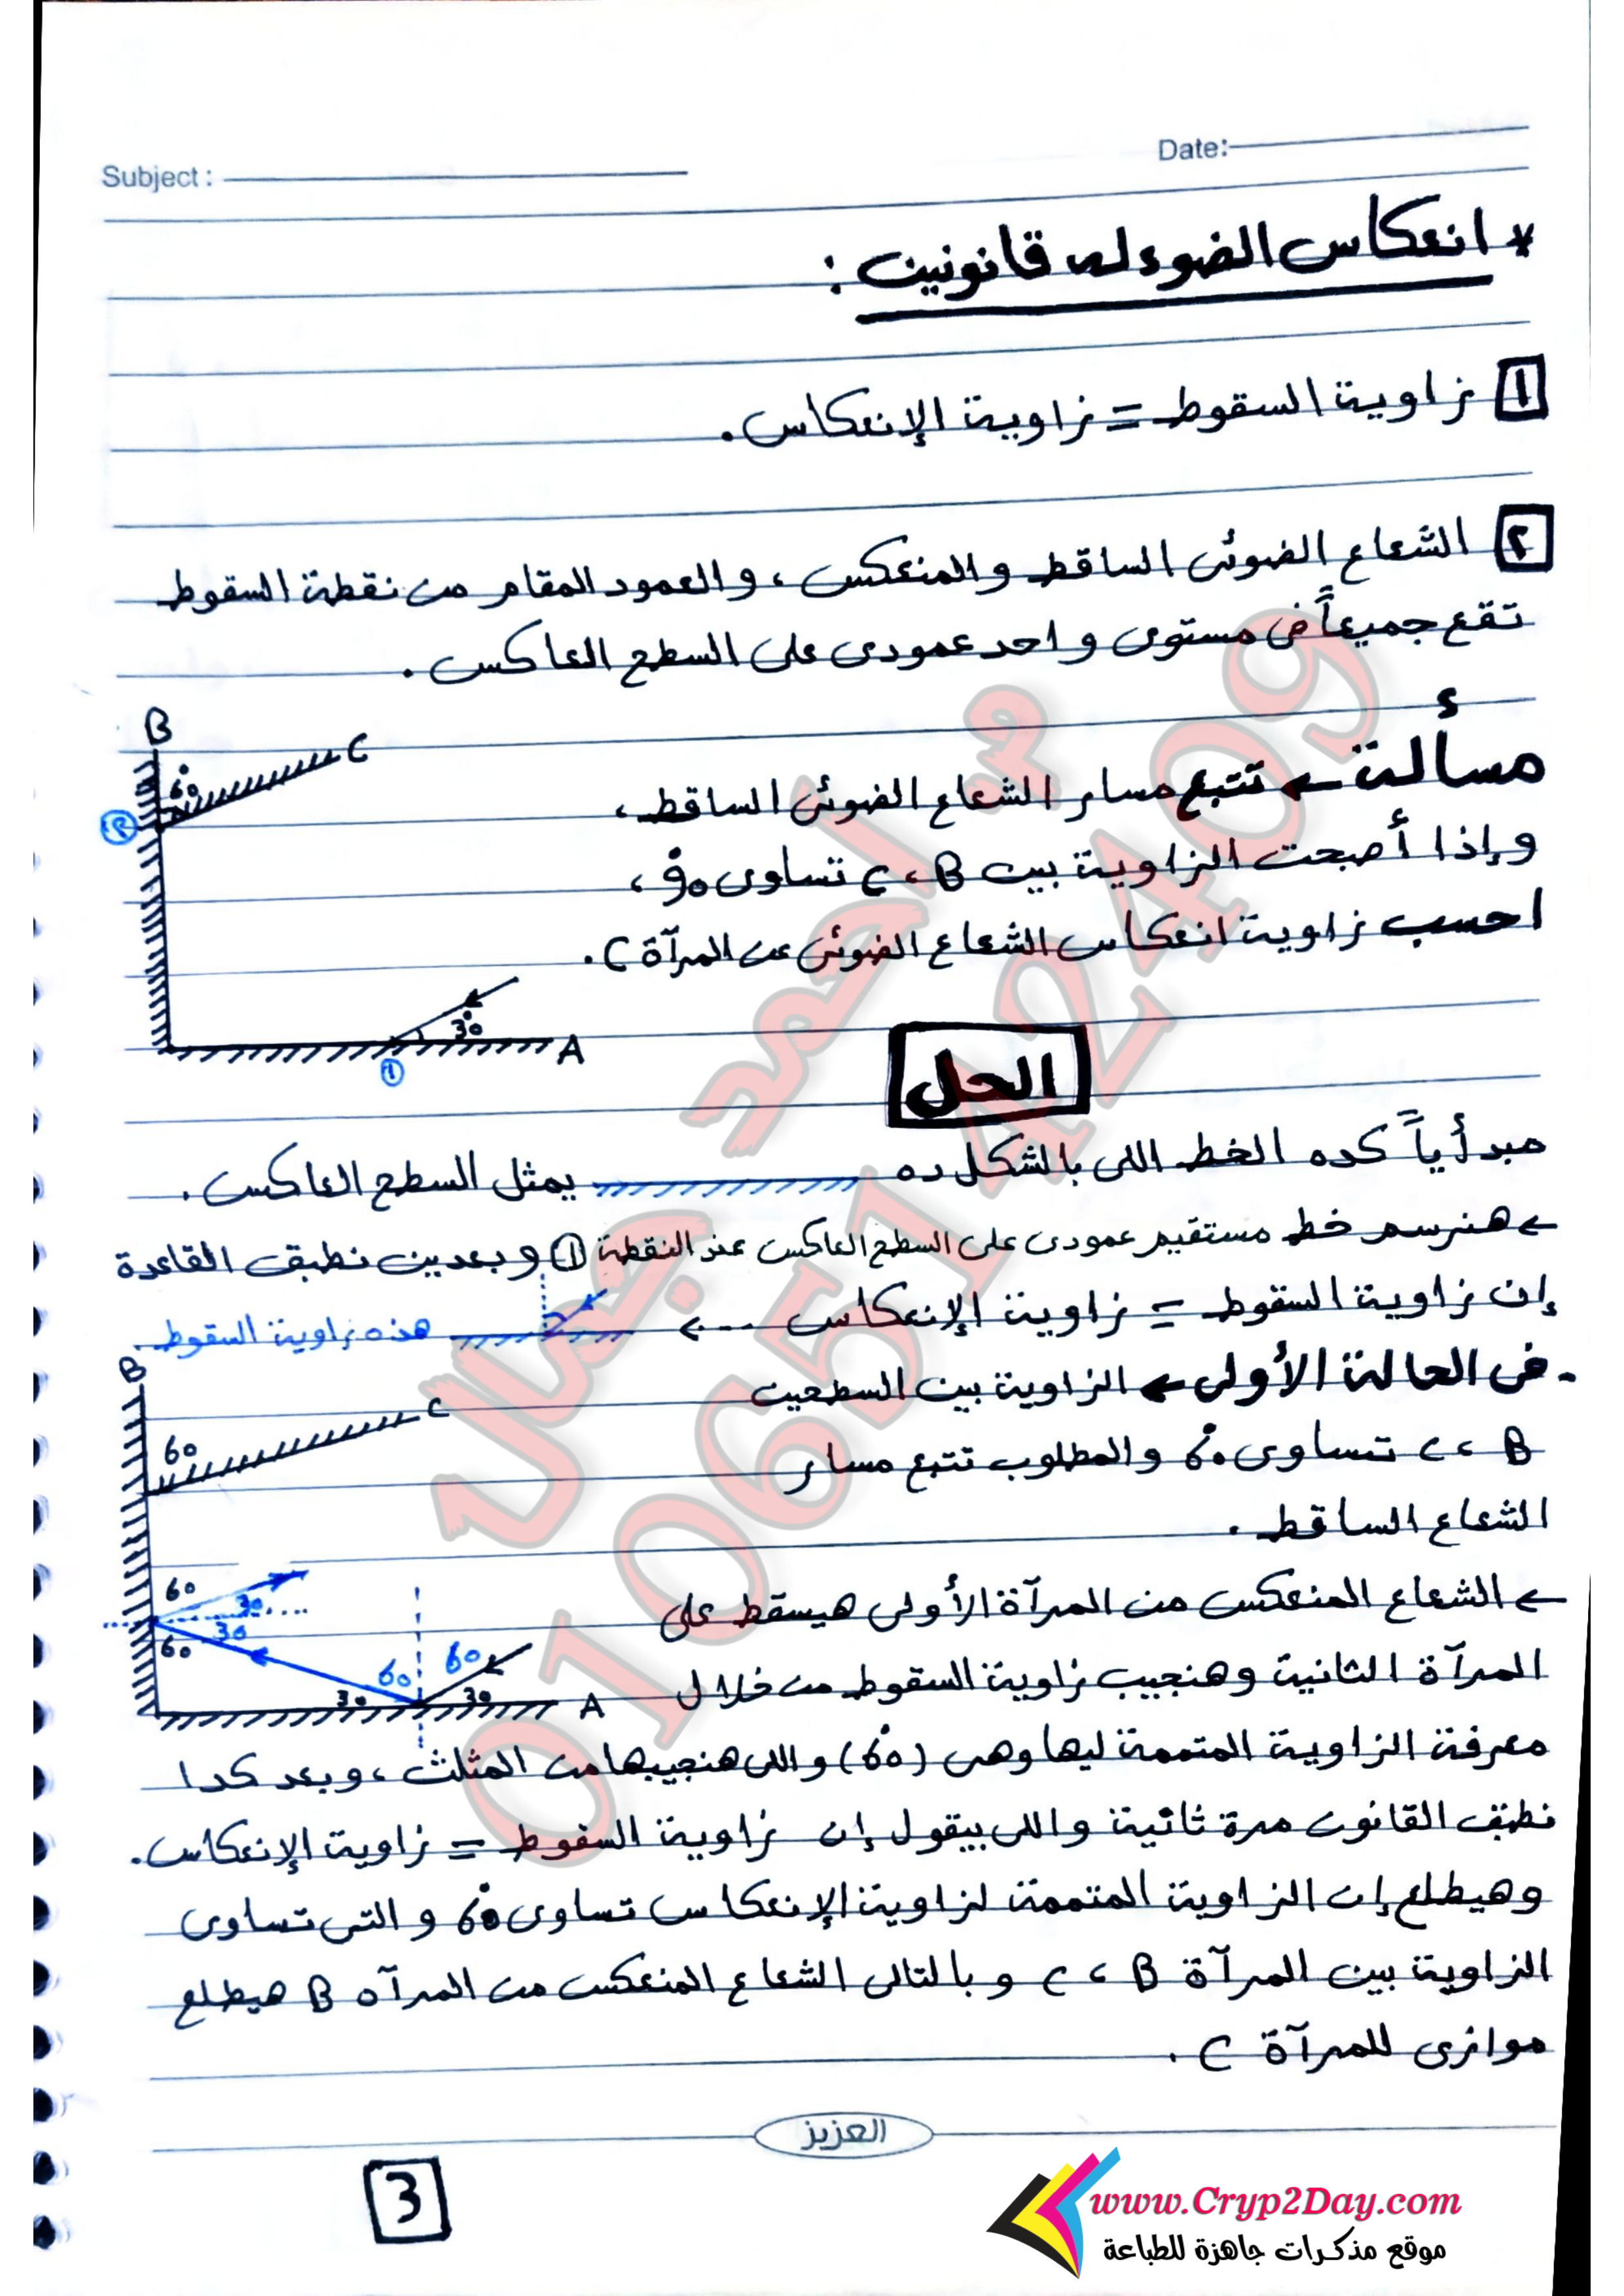 Subject :
Date:
* انعكاس الضوء له قانونين :
١ زاوية السقوط = زاوية الإنعكاس.
٢ الشعاع الضوئى الساقط والمنعكس ، والعمود المقام من نقطة السقوط
تقع جميعاً فى مستوى واحد عمودى على السطح العاكس .
مسألة ← تتبع مسار الشعاع الضوئى الساقط ،
وإذا أصبحت الزاوية بين C ، B تساوى 90° ،
احسب زاوية انعكاس الشعاع الضوئى عن المرآة C .
B
C
60°
٢
30°
A
١
الحل
مبدأياً كده الخط اللى بالشكل ده يمثل السطح العاكس .
← هنرسم خط مستقيم عمودى على السطح العاكس عند النقطة ١ وبعدين نطبق القاعدة
إن زاوية السقوط = زاوية الإنعكاس ---> هذه زاوية السقوط
. فى الحالة الأولى ← الزاوية بين السطحين
C ، B تساوى 60° والمطلوب تتبع مسار
الشعاع الساقط .
← الشعاع المنعكس من المرآة الأولى هيسقط على
المرآة الثانية وهنجيب زاوية السقوط من خلال
B
C
60
60
30
30
60
60
60
30
30
A
معرفة الزاوية المتممة ليها وهى (60°) واللى هنجيبها من المثلث ، وبعد كدا
نطبق القانون مرة ثانية واللى بيقول إن زاوية السقوط = زاوية الإنعكاس.
وهيطلع إن الزاوية المتممة لزاوية الإنعكاس تساوى 60° والتى تساوى
الزاوية بين المرآة C ، B وبالتالى الشعاع المنعكس من المرآه B هيطلع
موازى للمرآة C .
العزيز
3
م أحمد جمال
01065142409
www.Cryp2Day.com
موقع مذكرات جاهزة للطباعة